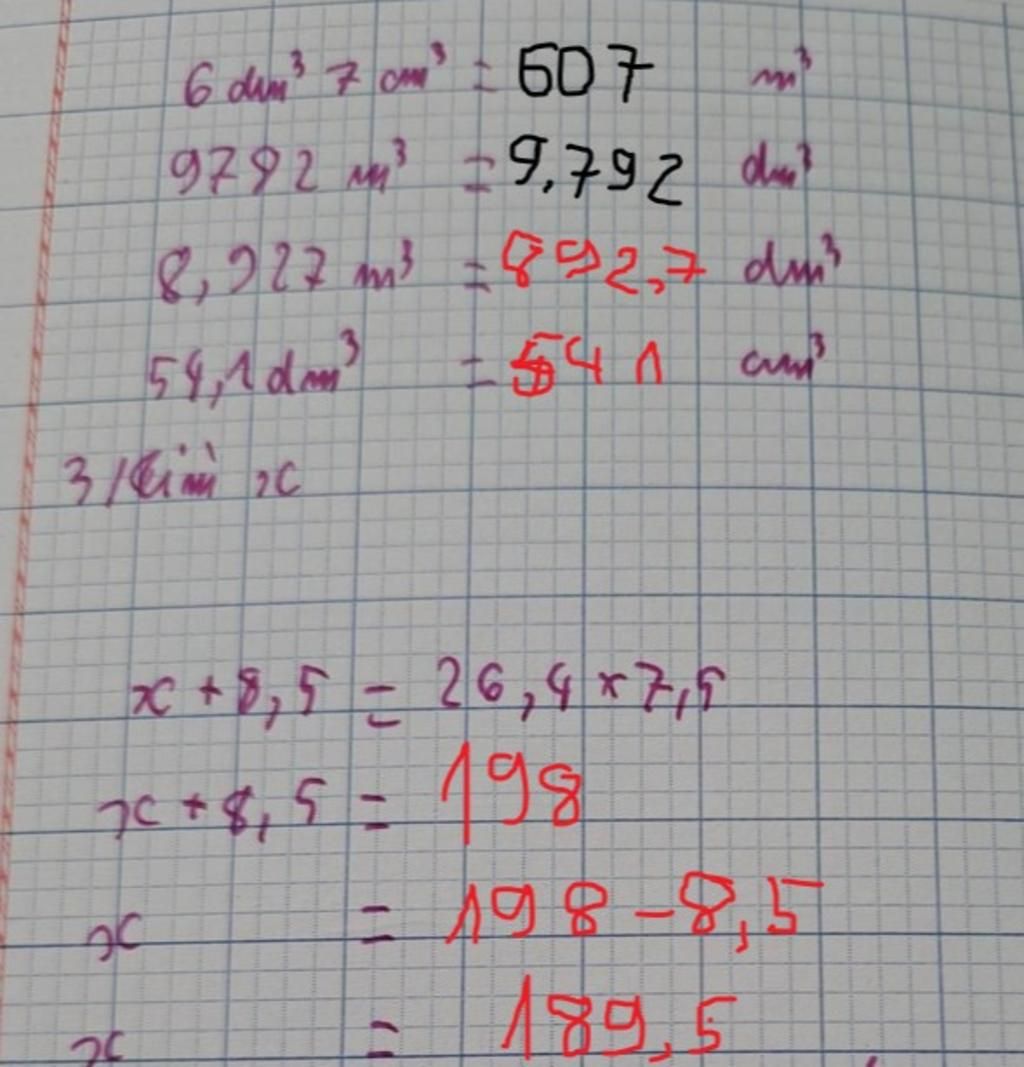 6 dm³ 7 cm³ = 607 m³
9792 m³ = 9.792 dm³
8,927 m³ = 892,7 dm³
54,1 dm³ = 541 cm³
3/ Tìm x
x + 8,5 = 26,4 x 7,5
x + 8,5 = 198
x = 198 - 8,5
x = 189,5